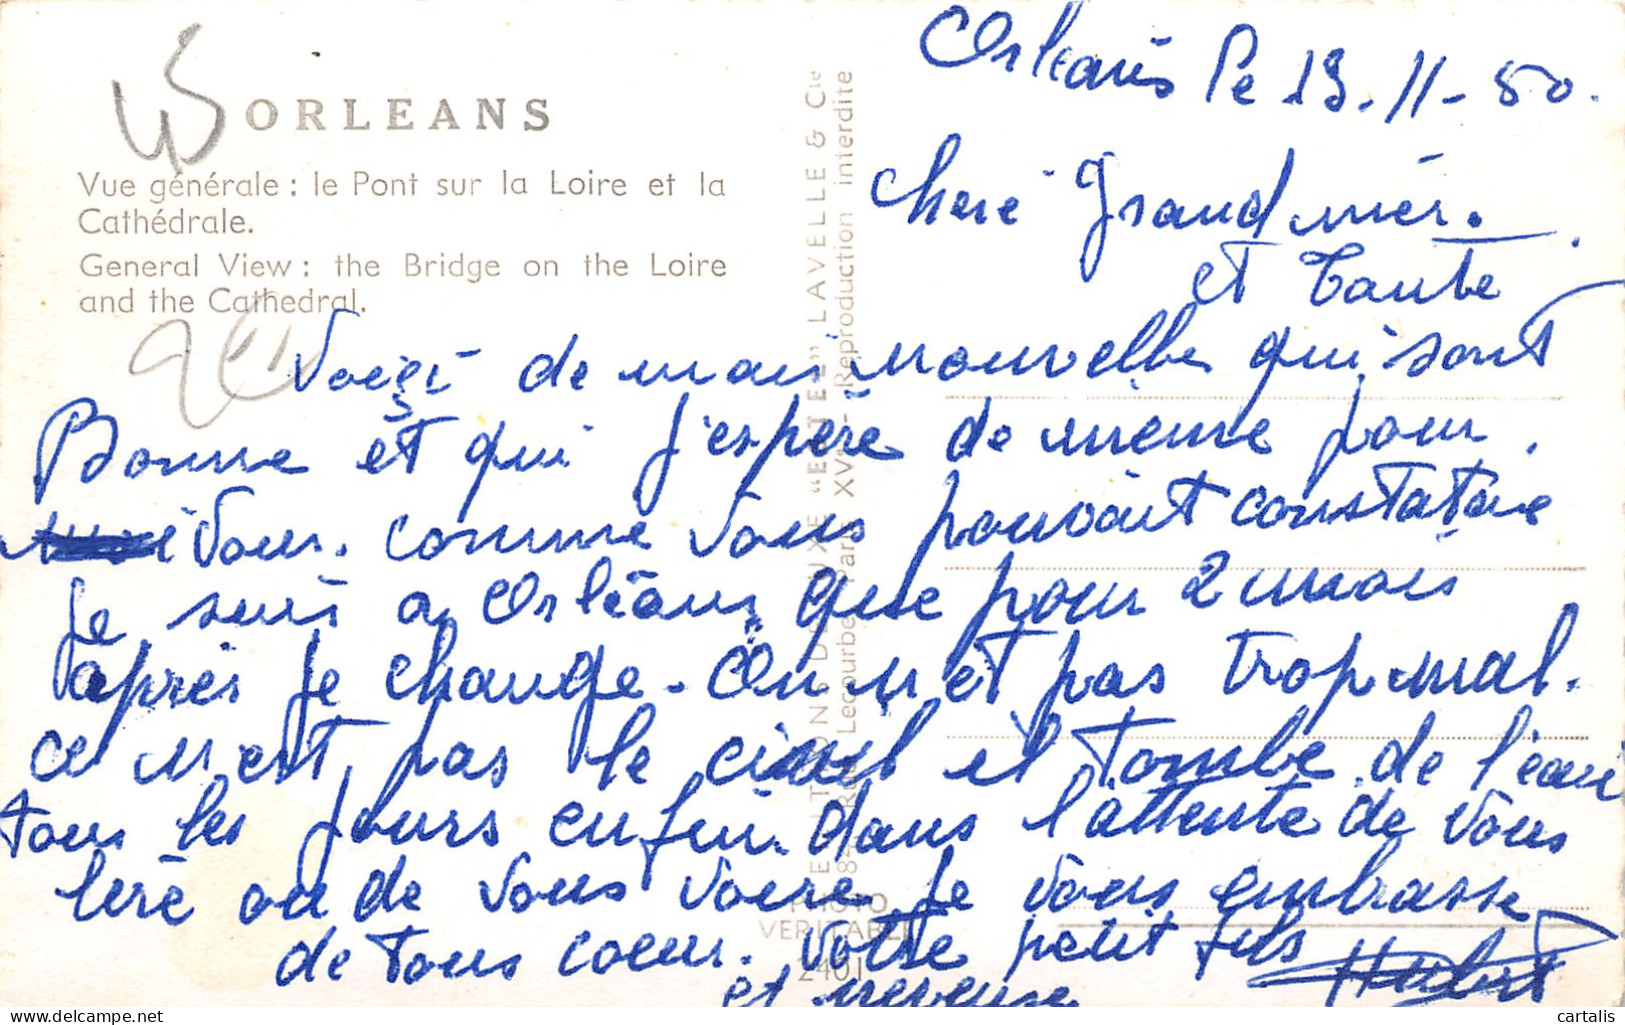 ORLEANS
Vue générale : le Pont sur la Loire et la
Cathédrale.
General View : the Bridge on the Loire
and the Cathedral.
LES EDITIONS DE LUXE "ESTEL" LAVELLE & Cie
84, Rue Lecourbe, Paris XVe - Reproduction interdite
PHOTO
VERITABLE
2401
Orléans le 13-11-50.
Chere Grand mèr.
et Tante
Voiçi de mais nouvelles qui sont
Bonne et qui j'espère de même pour
vous. comme vous pouvait constataire
je suis a Orléans que pour 2 mois
après je change. On n et pas trop mal.
ce n est pas le ciel il tombe de l'eau
tous les jours enfin dans l'attente de vous
lire ou de vous voire je vous embrasse
de tous coeur. Votre petit fils
et neveuse Hubert